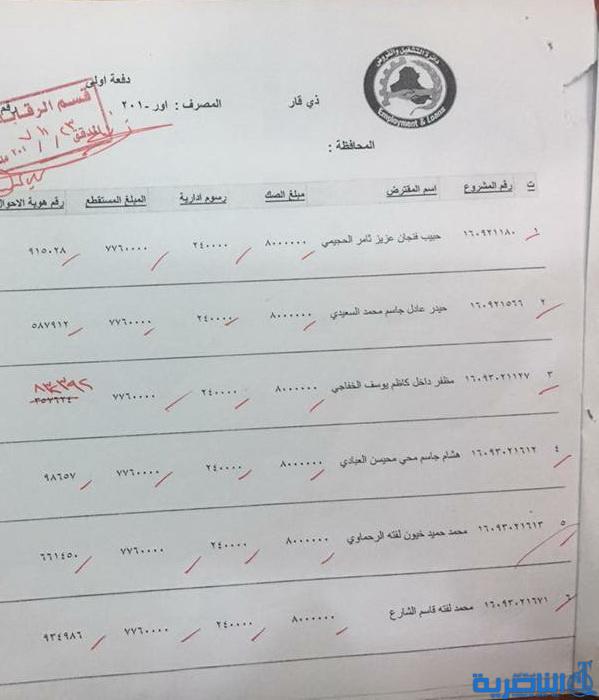 دائرة التشغيل والقروض
Employment & Loans
دفعة اولى
ذي قار
المصرف : اور -٢٠١
رقم
المحافظة :
قسم الرقابة
المدقق
ت رقم المشروع اسم المقترض مبلغ الصك رسوم ادارية المبلغ المستقطع رقم هوية الاحوال
١ ١٦٠٩٢١١٨٠ حبيب فنجان عزيز ثامر الحجيمي ٨٠٠٠٠٠٠ ٢٤٠٠٠٠ ٧٧٦٠٠٠٠ ٩١٥٠٢٨
٢ ١٦٠٩٢١٥٦٦ حيدر عادل جاسم محمد السعيدي ٨٠٠٠٠٠٠ ٢٤٠٠٠٠ ٧٧٦٠٠٠٠ ٥٨٧٩١٢
٣ ١٦٠٩٣٠٢١١٢٧ مظفر داخل كاظم يوسف الخفاجي ٨٠٠٠٠٠٠ ٢٤٠٠٠٠ ٧٧٦٠٠٠٠
٤ ١٦٠٩٣٠٢١٦١٢ هشام جاسم محي محيسن العبادي ٨٠٠٠٠٠٠ ٢٤٠٠٠٠ ٧٧٦٠٠٠٠ ٩٨٦٥٧
٥ ١٦٠٩٣٠٢١٦١٣ محمد حميد خيون لفته الرحماوي ٨٠٠٠٠٠٠ ٢٤٠٠٠٠ ٧٧٦٠٠٠٠ ٦٦١٤٥٠
٦ ١٦٠٩٣٠٢١٦٧١ محمد لفته قاسم الشارع ٨٠٠٠٠٠٠ ٢٤٠٠٠٠ ٧٧٦٠٠٠٠ ٩٣٤٩٨٦
الناصرية